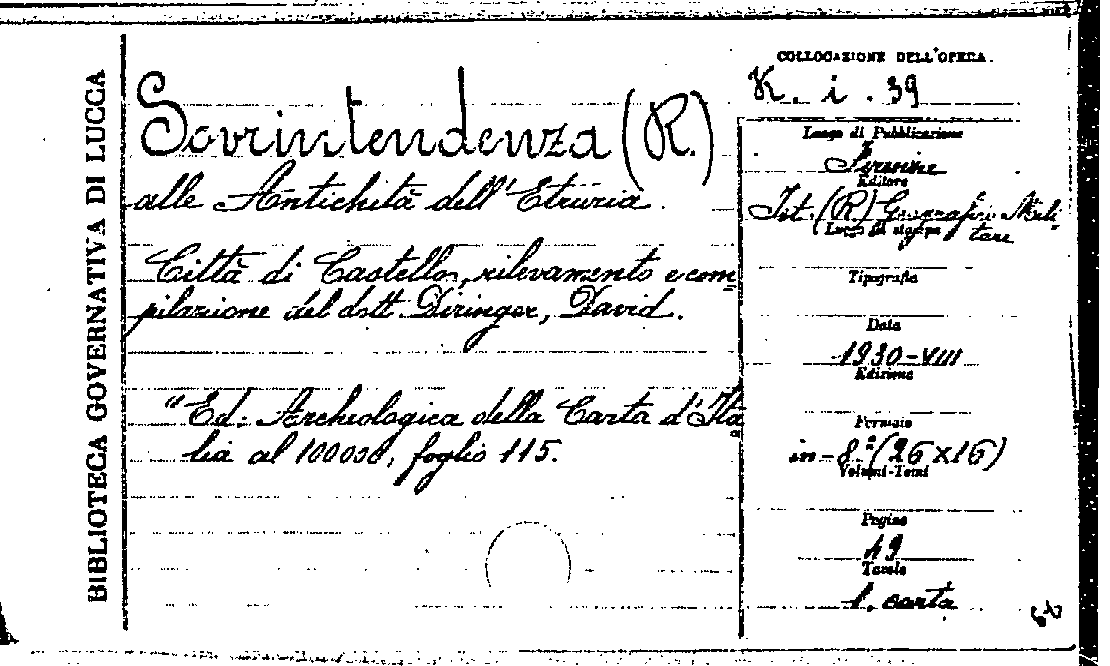 BIBLIOTECA GOVERNATIVA DI LUCCA
Sovrintendenza (R.)
alle Antichità dell'Etruria.
Città di Castello, rilevamento e com
pilazione del dott. Diringer, David.
"Ed: Archeologica della Carta d'Ita
lia al 100000, foglio 115.
COLLOCAZIONE DELL'OPERA.
K. i. 39
Luogo di Pubblicazione
Firenze
Editore
Ist. (R.) Geografico Mili-
tare
Luogo di stampa
Tipografia
Data
1930-VIII
Edizione
Formato
in-8º (26×16)
Volumi-Tomi
Pagine
49
Tavole
1. carta